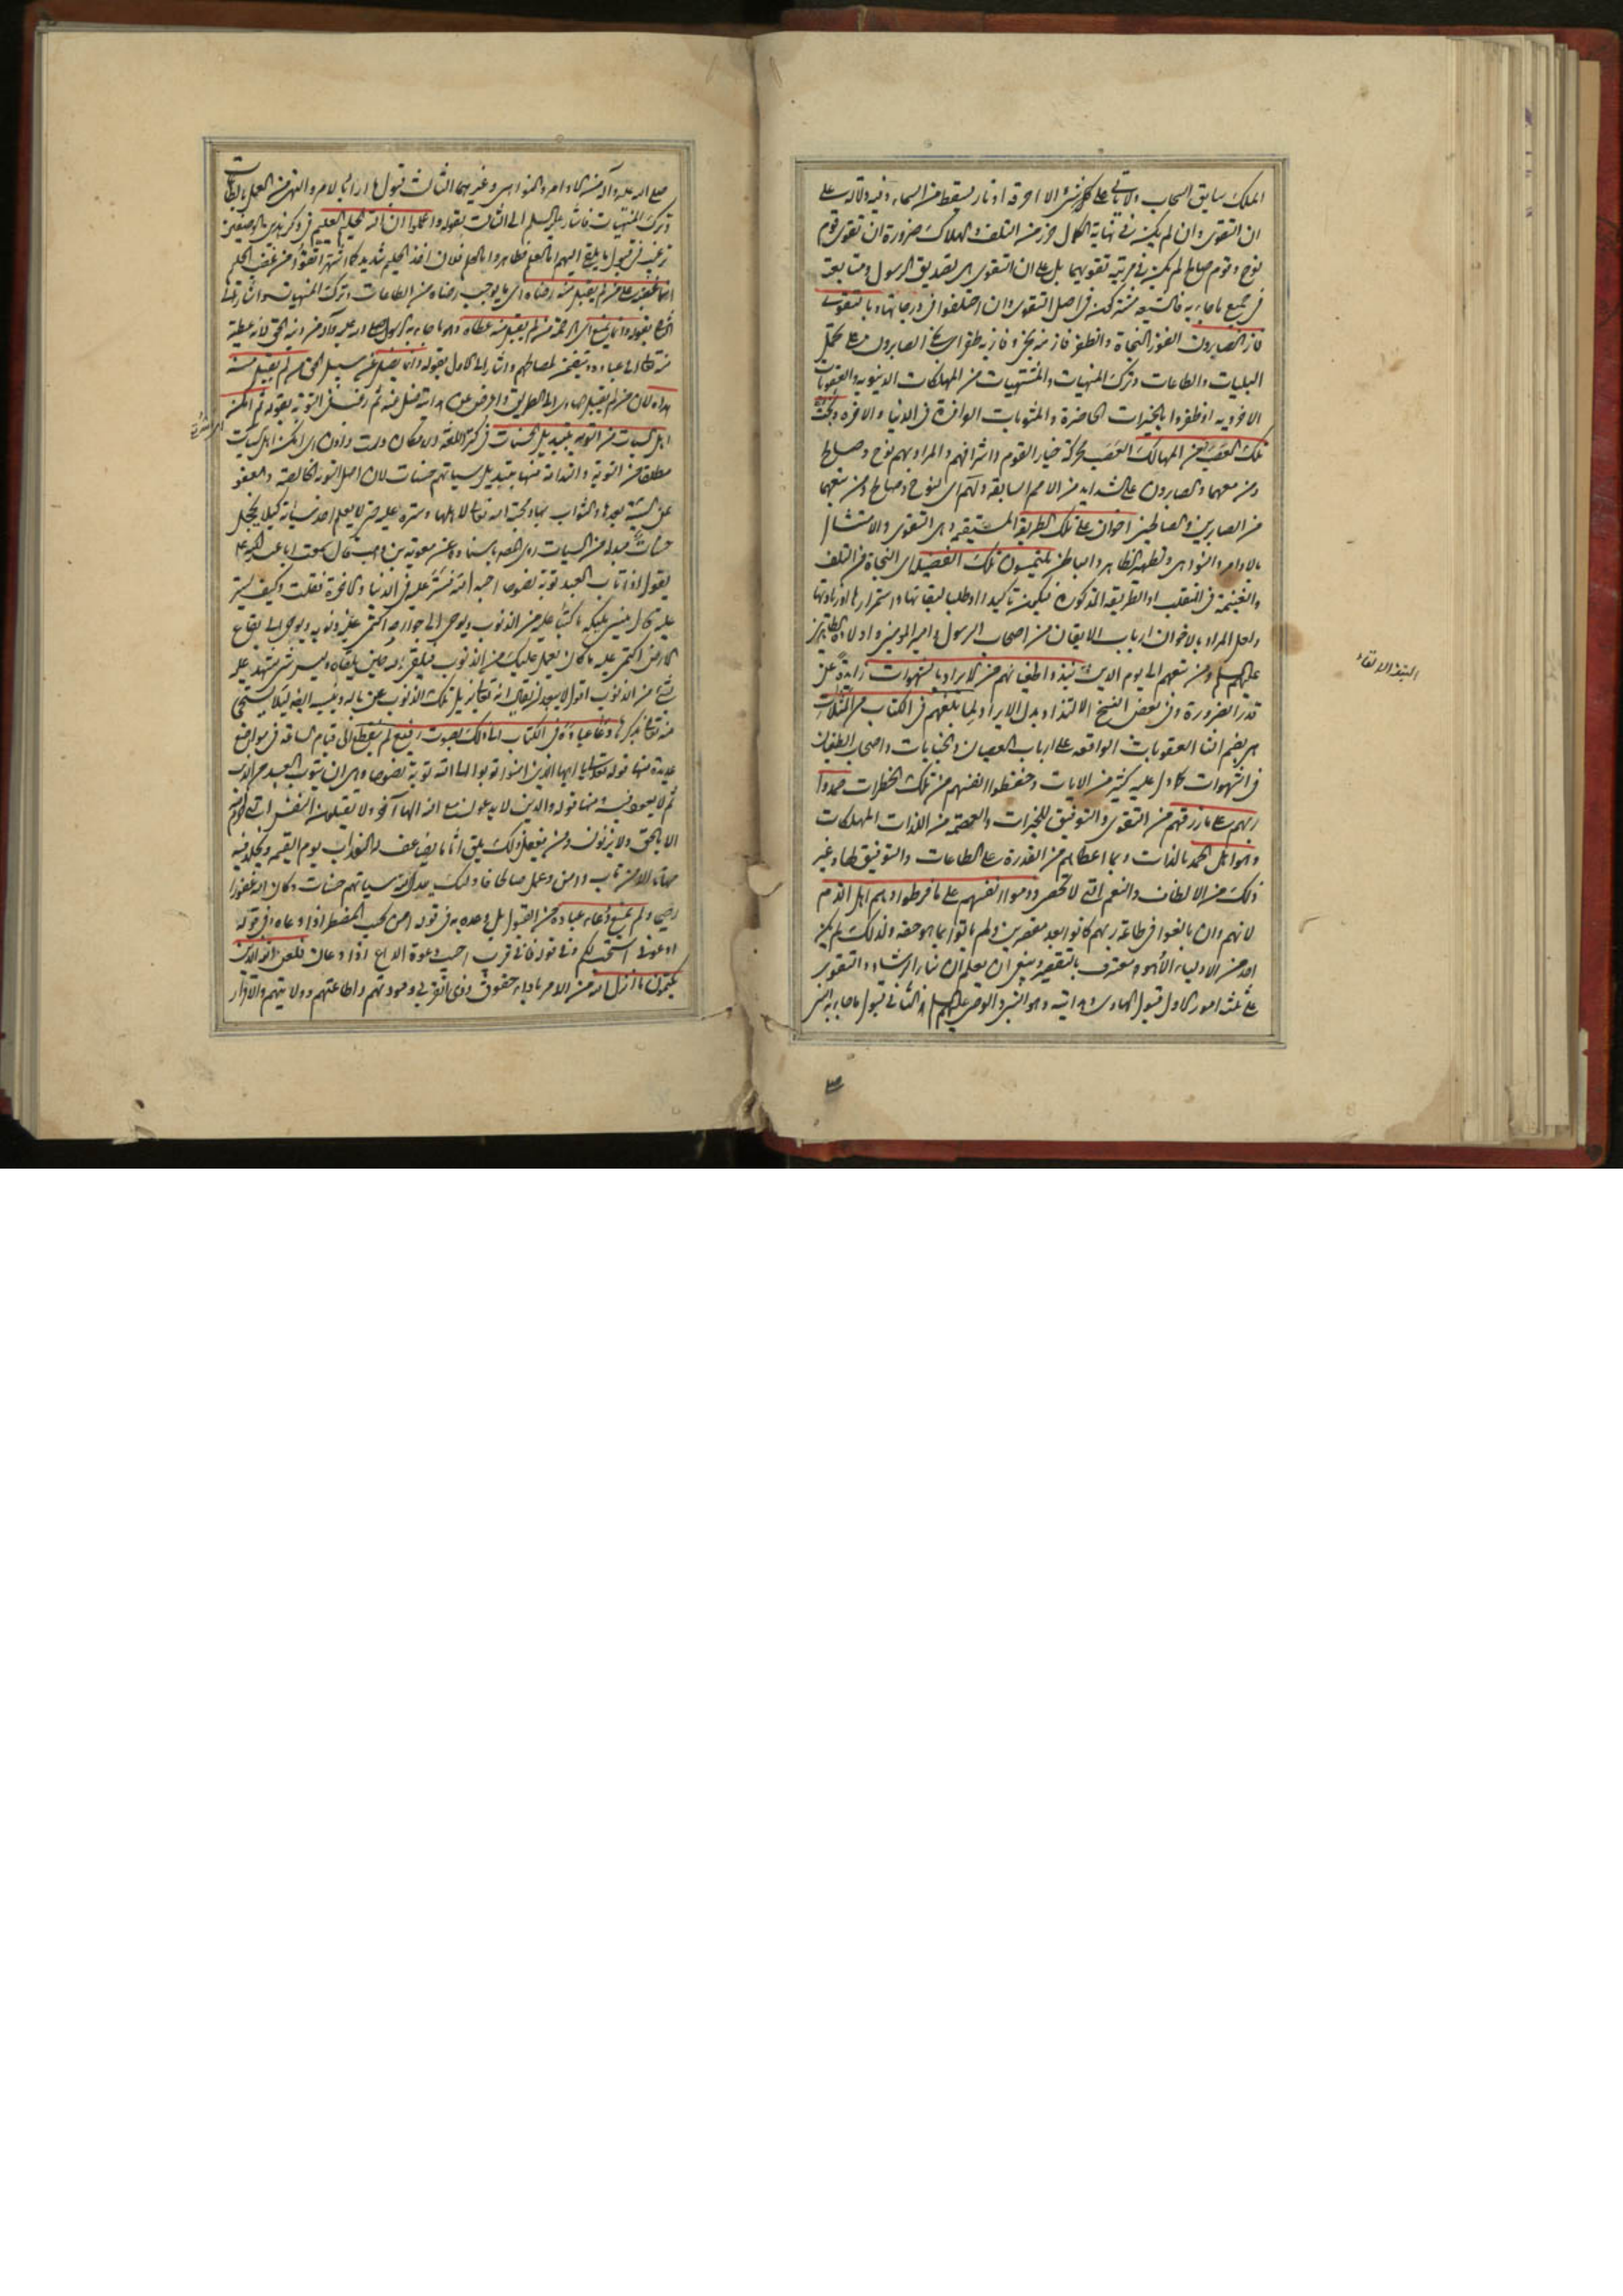 الملك سايق السحاب ولا تاتي على كل شيء الا احرقه او نار يسقط من السماء وفيه دلالة على
ان التقوى وان لم يكن في نهاية الكمال حرز من التلف والهلاك ضرورة ان تقوى قوم
نوح وقوم صالح لم يكن في مرتبة تقويهما بل على ان التقوى هي تصديق الرسول ومتابعته
في جميع ما جاء به فالشيعة مشتركة في اصل التقوى وان اختلفوا في درجاتها وبالتقوى
فاز الصابرون الفوز النجاة والظفر فاز منه نجى وفاز به ظفر اى نجى الصابرون على تحمل
البليات والطاعات وترك المنهيات والمشتهيات من المهلكات الدنيوية والعقوبات
الاخروية او ظفروا بالخيرات الحاضرة والمثوبات الوافرة في الدنيا والاخرة ونجت
تلك العصب من المهالك العصب محركة خيار القوم واشرافهم والمراد بهم نوح وصالح
ومن معهما والصابرون على الشدايد من الامم السابقة ولهم اى لنوح وصالح ومن معهما
من الصابرين والصالحين اخوان على تلك الطريقة المستقيمة وهي التقوى والامتثال
بالاوامر والنواهي وتطهير الظاهر والباطن يلتمسون تلك الفضيلة اى النجاة من التلف
والغنيمة في المنقلب او الطريقة المذكورة فيكون تاكيدا او طلب لبقائها واستمرارها او زيادتها
ولعل المراد بالاخوان ارباب الايقان من اصحاب الرسول وامير المومنين واولاده الطاهرين
عليهم السلم ومن تبعهم الى يوم الدين نبذوا طغيانهم من الايراد بالشهوات زايدة عن
قدر الضرورة وفي بعض النسخ الالتذاذ بدل الايراد لما بلغهم في الكتاب من المثلات
هي بضم الثا العقوبات الواقعة على ارباب العصيان والجنايات واصحاب الطغيان
في الشهوات كما دل عليه كثير من الايات وحفظوا انفسهم من تلك الخطرات حمدوا
ربهم على ما رزقهم من التقوى والتوفيق للخيرات والعصمة من اللذات المهلكات
وهو اهل الحمد بالذات وبما اعطاهم من القدرة على الطاعات والتوفيق لها وغير
ذلك من الالطاف والنعم التي لا تحصى وذموا انفسهم على ما فرطوا وهم اهل الذم
لانهم وان بالغوا في طاعة ربهم كانوا بعد مقصرين ولم ياتوا بما هو حقه ولذلك لم يكن
احد من الاولياء الا وهو معترف بالتقصير وينبغي ان يعلم ان بناء الرشاد والتقوى
على ثلثة امور الاول قبول الهادي وهدايته وهو النبي والوصي عليهم السلم الثاني قبول ما جاء به النبي
صلى الله عليه وآله من الاوامر والنواهي وغيرهما الثالث قبول ارادة الاوامر والنهى من العمل بالطاعات
وترك المنهيات فاشار عليه السلم الى الثالث بقوله واعلموا ان الله الحليم العليم في ذكر هذين الوصفين
ترغيب في قبول ما يلقى اليهم اما العلم فظاهر واما الحلم فلان اخذ الحليم شديد كما اشتهر اتقوا من غضب الحليم
انما غضبه على من لم يقبل منه رضاه اى ما يوجب رضاه من الطاعات وترك المنهيات واشار الى
الثاني بقوله وانما يمنع اى الرحمة من لم يقبل منه عطاه وهو ما جاء به الرسول صلى الله عليه وآله من دينه الحق لانه عطية
منه تعالى الى عباده ويتضمن لمصالحهم واشار الى الاول بقوله وانما يضل عن سبيل الحق من لم يقبل منه
هداه لان من لم يقبل الهادي الى الطريق واعرض عن هدايته ضل عنه ثم رغب في التوبة بقوله ثم امكن
اهل السيئات من التوبة بتبديل الحسنات في كنز اللغة
مطلقا من التوبة والندامة منها بتبديل سيئاتهم حسنات لان اصل التوبة الخالصة والعفو
عن السيئة بعدها والثواب بها ومحبة الله تعالى لاهلها وستره عليه حتى لا يعلم احد سيئاته كيلا يخجل
حسنات مبدلة من السيئات روى المصنف باسناده عن معوية بن وهب قال سمعت ابا عبد الله ع
يقول اذا تاب العبد توبة نصوحا احبه الله فستر عليه في الدنيا والاخرة فقلت وكيف يستر
عليه قال ينسي ملكيه ما كتبا عليه من الذنوب ويوحى الى جوارحه اكتمي عليه ذنوبه ويوحى الى بقاع
الارض اكتمي عليه ما كان يعمل عليك من الذنوب فيلقى الله حين يلقاه وليس شيء يشهد عليه
بشيء من الذنوب اقول لا يبعد ان يقال انه تعالى يزيل تلك الذنوب عن باله وينسيه ايضا لئلا يستحيي
منه تعالى بذكرها دعا عباده في الكتاب الى ذلك بصوت رفيع لم ينقطع الى قيام الساعة في مواضع
عديدة منها قوله تعالى يا ايها الذين امنوا توبوا الى الله توبة نصوحا وهي ان يتوب العبد من الذنب
ثم لا يعود فيه ومنها قوله والذين لا يدعون مع الله الها آخر ولا يقتلون النفس التي حرم الله
الا بالحق ولا يزنون ومن يفعل ذلك يلق اثاما يضاعف له العذاب يوم القيمة ويخلد فيه
مهانا الا من تاب وامن وعمل صالحا فاولئك يبدل الله سيئاتهم حسنات وكان الله غفورا
رحيما ولم يمنع دعاء عباده من القبول بل وعده به في قوله امن يجيب المضطر اذا دعاه وفي قوله
ادعوني استجب لكم وفي قوله فاني قريب اجيب دعوة الداع اذا دعان فلعن الله الذين
يكتمون ما انزل الله من الامر باداء حقوق ذوى القربى ومودتهم واطاعتهم وولايتهم والاقرار